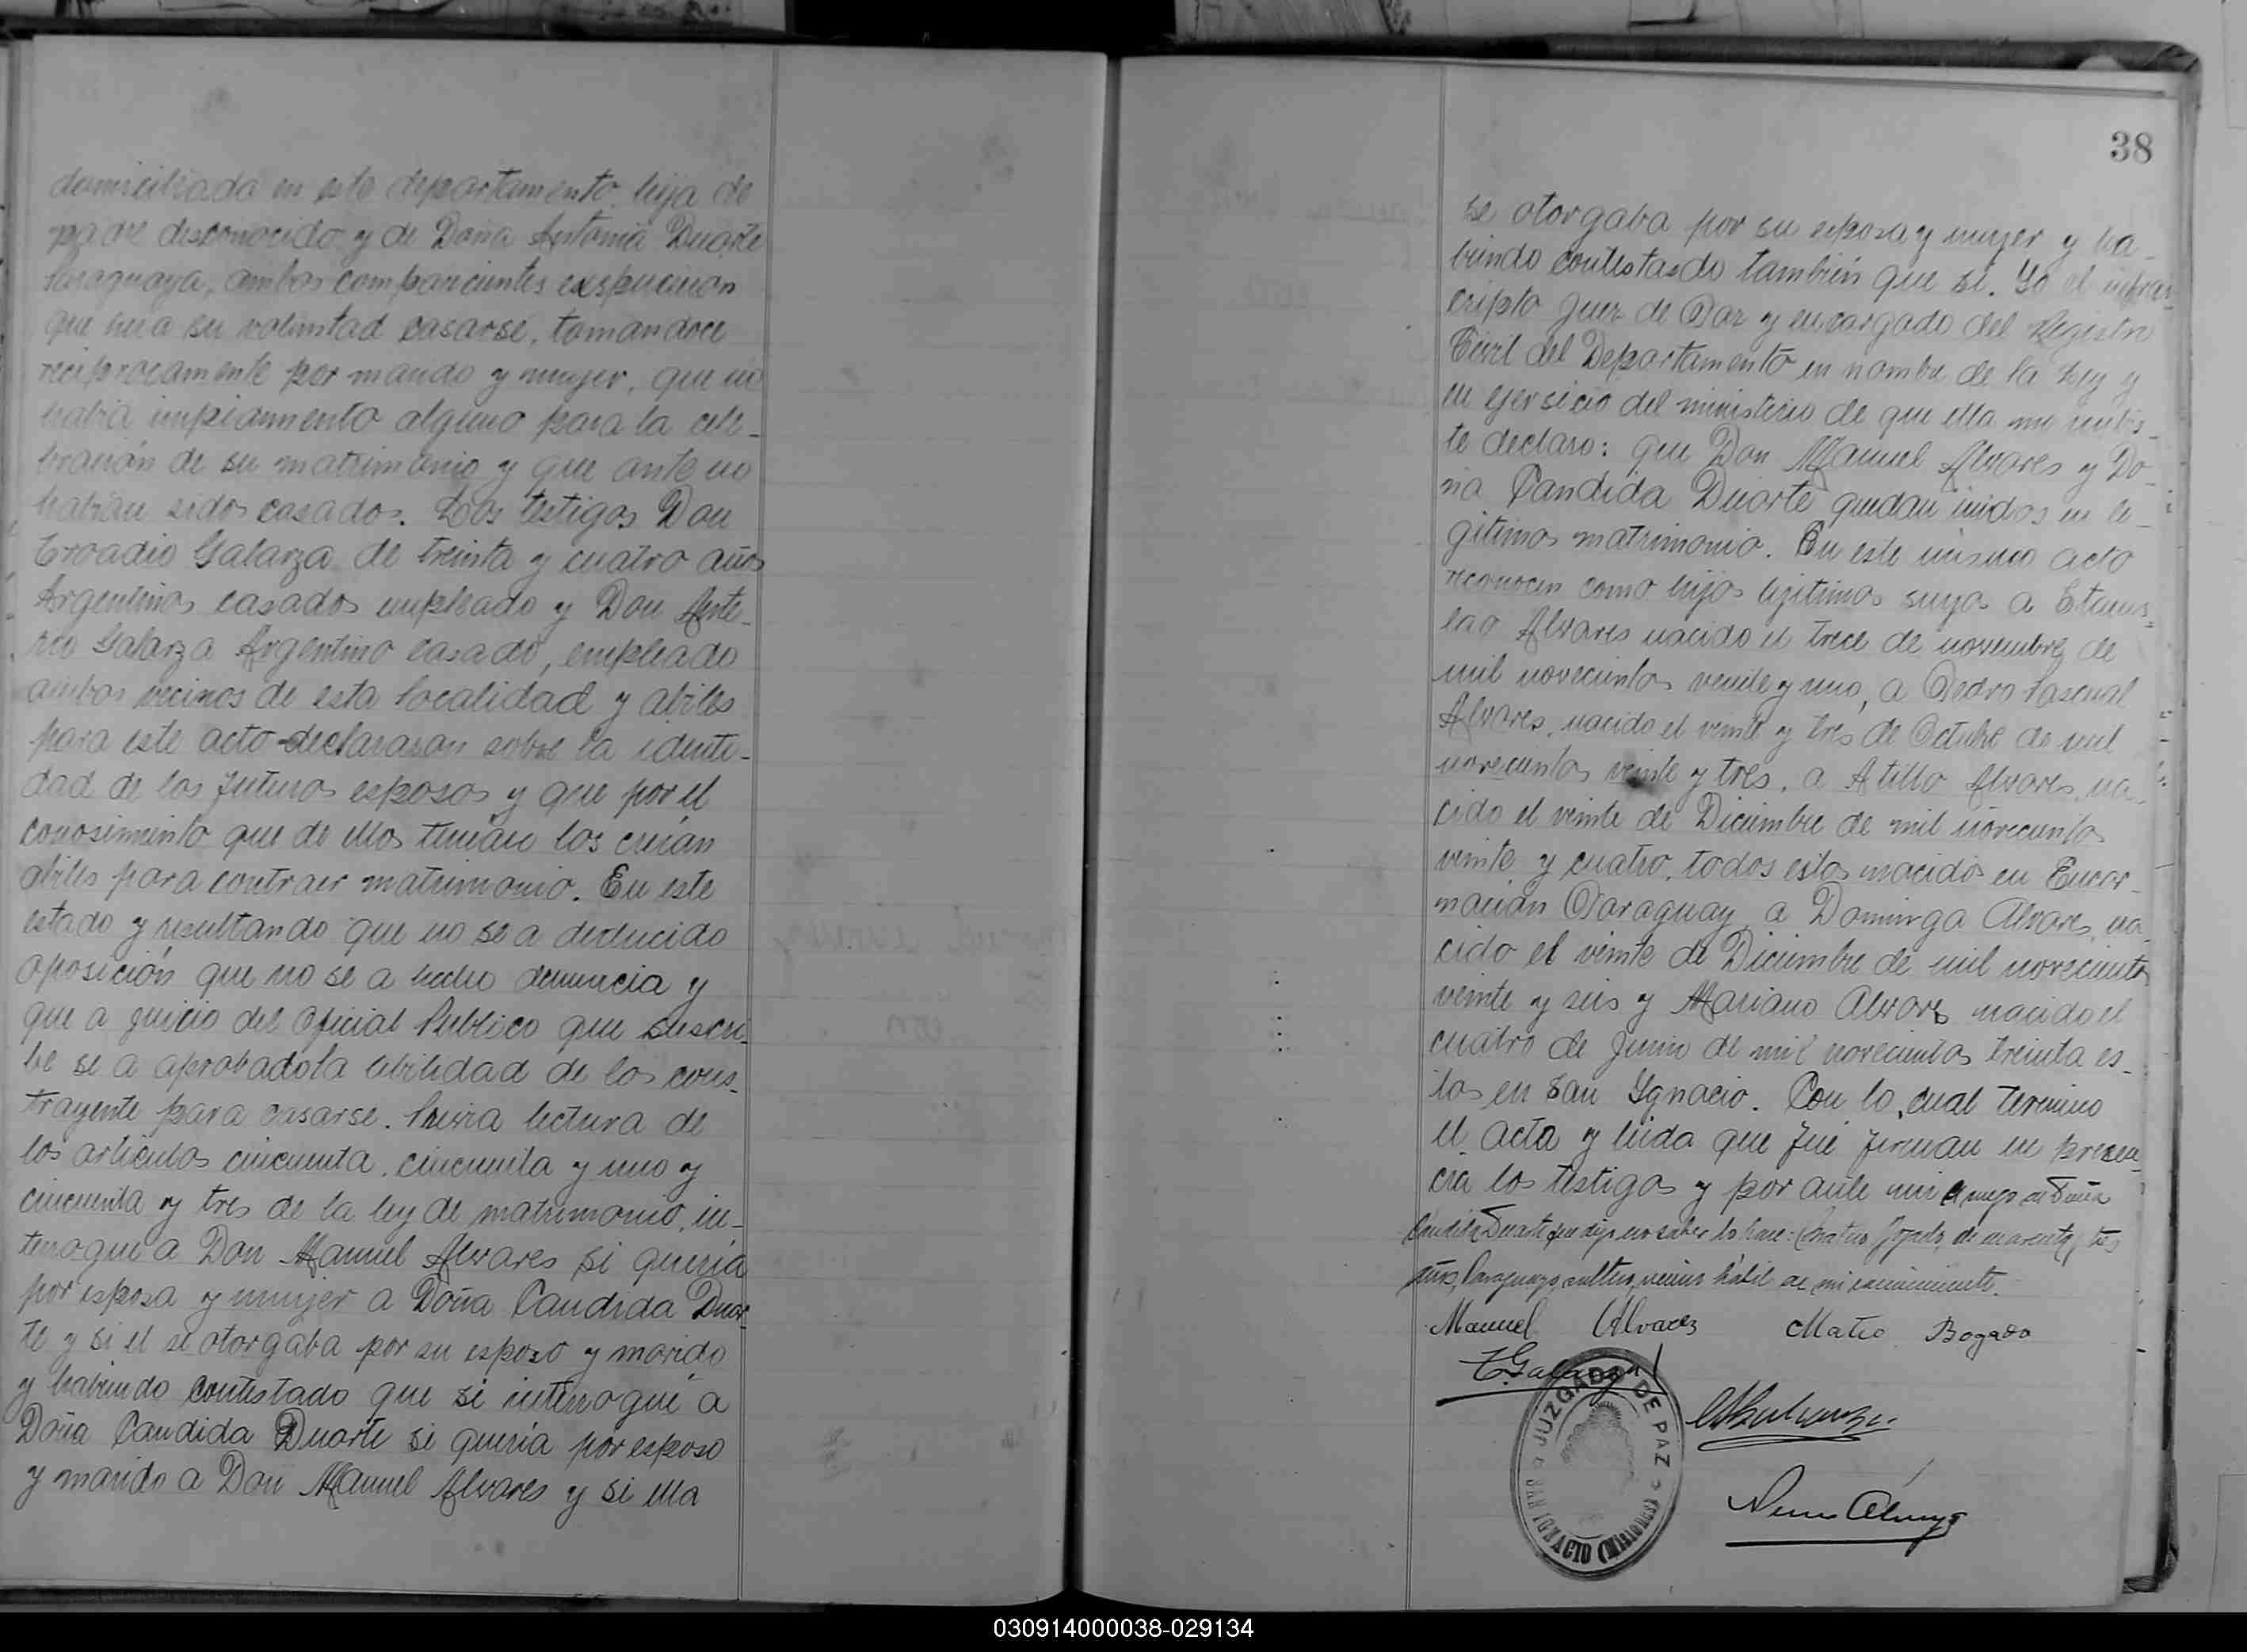 domiciliada en este departamento hija de
padre desconocido y de Doña Antonia Duarte
Paraguaya, ambos comparecientes expucieron
que hera su voluntad casarse, tomandoce
reciprocamente por marido y mujer, que no
habia impidimento alguno para la cele-
bración de su matrimonio y que ante no
habian sidos casados. Los testigos Don
Troadio Galarza de treinta y cuatro años
Argentinos casados empleado y Don Ante-
nio Galarza Argentino casado, empleado
ambos vecinos de esta localidad y abiles
para este acto declararon sobre la identi-
dad de los futuros esposos y que por el
conosimiento que de ellos tenian los creian
abiles para contraer matrimonio. En este
estado y resultando que no se a deducido
oposición que no se a hecho denuncia y
que a juicio del oficial Publico que suscri-
be se a aprobado la abilidad de los cons-
trayente para casarse. Previa lectura de
los articulos cincuenta, cincuenta y uno y
cincuenta y tres de la ley de matrimonio, in-
terogue a Don Manuel Alvares si queria
por esposa y mujer a Doña Candida Duar-
te y si el se otorgaba por su esposo y marido
y habiendo contestado que si interrogué a
Doña Candida Duarte si queria por esposo
y marido a Don Manuel Alvares y si ella
38
se otorgaba por su esposa y mujer y ha-
biendo contestasdo también que si. Yo el infras-
cripto Juez de Paz y encargado del Registro
Civil del Departamento en nombre de la Ley y
en ejersicio del ministerio de que ella me imbis-
te declaro: que Don Manuel Alvares y Do-
ña Candida Duarte quedan unidos en le-
gitimos matrimonio. En este mismo acto
reconocen como hijos legitimos suyos a Etanis-
lao Alvares nacido el trece de novembre de
mil novecientos veinte y uno, a Pedro Pascual
Alvares, nacido el veinte y tres de Octubre de mil
novecientos veinte y tres, a Atillo Alvares, na-
cido el veinte de Diciembre de mil novecientos
veinte y cuatro, todos estos nacidos en Encar-
nación Paraguay, a Dominga Alvares, na-
cido el veinte de Diciembre de mil novecientos
veinte y seis y Mariano Alvares nacido el
cuatro de Junio de mil novecientos treinta es-
tos en San Ygnacio. Con lo cual termino
el acta y leida que fué firman en presen-
cia los testigos y por ante mi a ruego de Doña
Candida Duarte que dijo no saber lo hace: Mateo Bogado, de cuarenta y tres
años, Paraguayo, vecino hábil de mi conocimiento.
Manuel Alvarez Mateo Bogado
T Galarza
JUZGADO DE PAZ
SAN IGNACIO (Misiones)